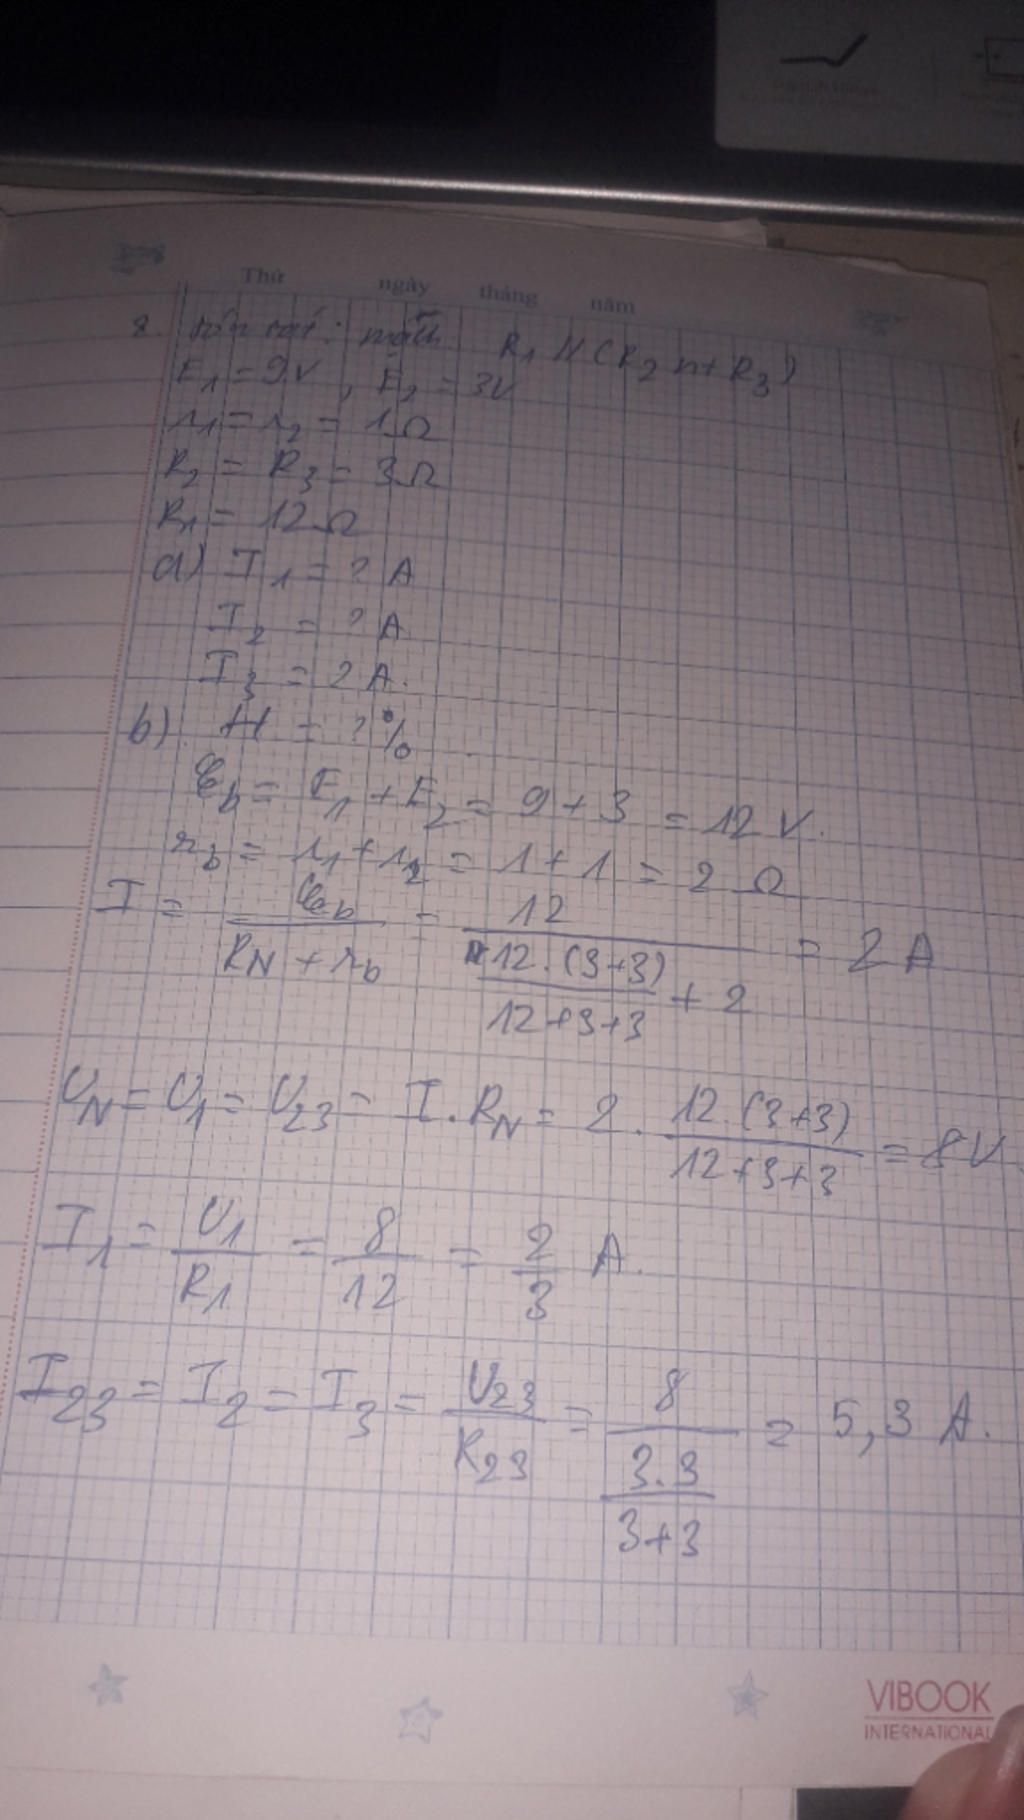 Thứ ngày tháng năm
8. tóm tắt: mạch R₁ // (R₂ nt R₃)
E₁ = 9V, E₂ = 3V
r₁ = r₂ = 1Ω
R₂ = R₃ = 3Ω
R₁ = 12Ω
a) I₁ = ? A
I₂ = ? A
I₃ = ? A.
b) H = ? %
ℰb = E₁ + E₂ = 9 + 3 = 12 V.
rb = r₁ + r₂ = 1 + 1 = 2 Ω
I = ℰb / (RN + rb) = 12 / (12.(3+3) / (12+3+3) + 2) = 2 A
UN = U₁ = U₂₃ = I.RN = 2. 12.(3+3) / (12+3+3) = 8V.
I₁ = U₁ / R₁ = 8 / 12 = 2 / 3 A.
I₂₃ = I₂ = I₃ = U₂₃ / R₂₃ = 8 / (3.3 / (3+3)) = 5,3 A.
VIBOOK
INTERNATIONAL